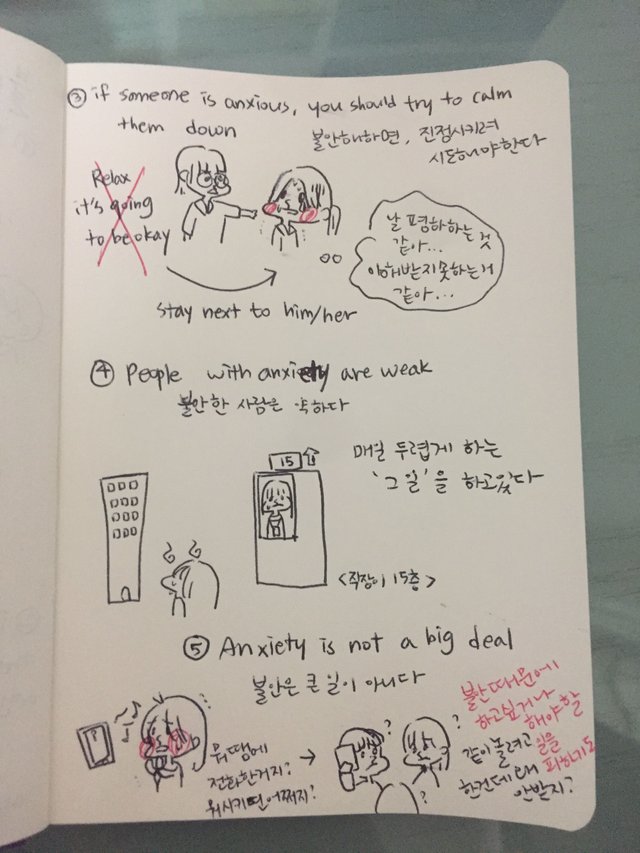 ③ if someone is anxious, you should try to calm
them down
불안해하면, 진정시키려
시도해야한다
Relax
it's going
to be okay
날 폄하하는 것
같아...
이해받지못하는거
같아...
stay next to him/her
④ People with anxiety are weak
불안한 사람은 약하다
매일 두렵게 하는
'그 일'을 하고있다
15
<직장이 15층>
⑤ Anxiety is not a big deal
불안은 큰 일이 아니다
?
뭐땜에
전화한거지?
뭐시키면어쩌지?
→
?
?
?
같이놀려고
한건데 왜
안받지?
불안때문에
하고싶거나
해야할
일을
피하기도